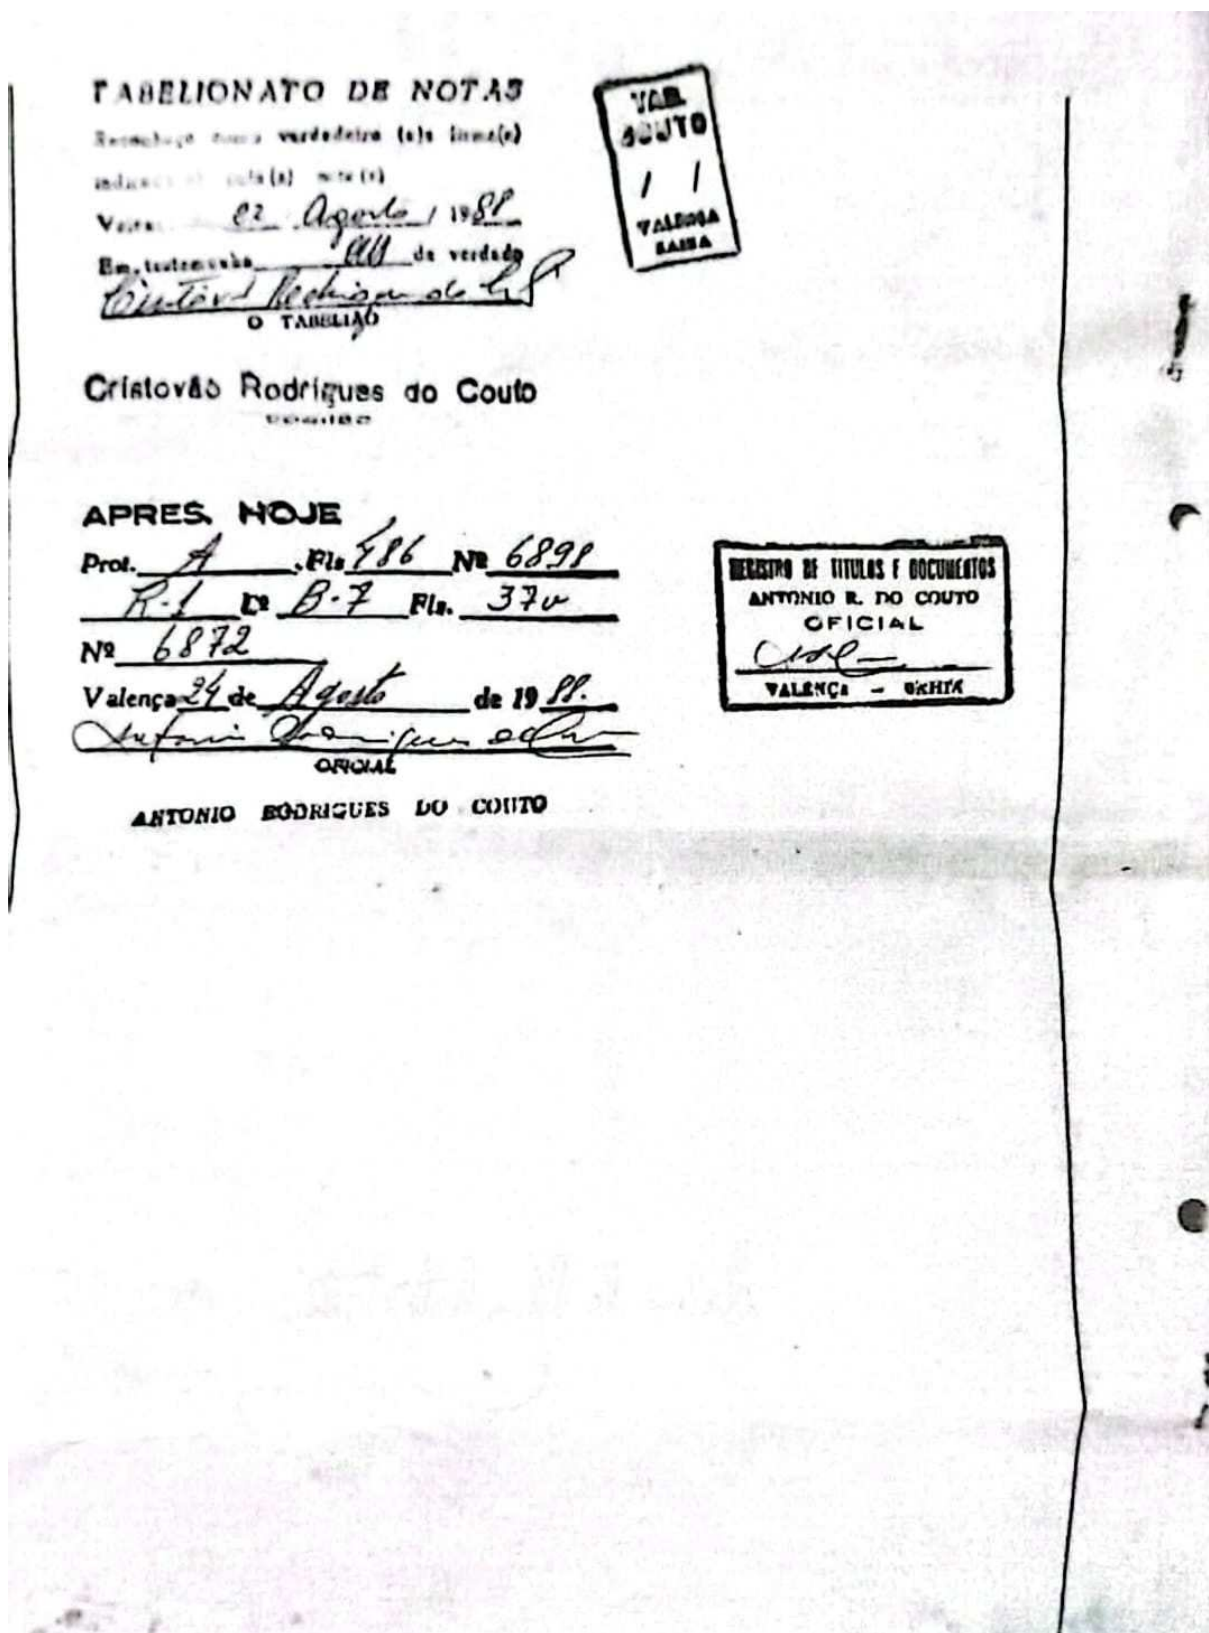 TABELIONATO DE NOTAS
verdadeira (a)s firma(s)
(s)
02 Agosto 1988
Em testemunho da verdade
O TABELIÃO
Cristovão Rodrigues do Couto
TAB.
COUTO
/ /
VALENÇA
BAHIA
APRES. HOJE
Prot. A Fls 186 Nº 6898
R-1 Lº B-7 Fls. 37v
Nº 6872
Valença 24 de Agosto de 19 88.
Antonio Rodrigues do Couto
OFICIAL
ANTONIO RODRIGUES DO COUTO
REGISTRO DE TITULOS E DOCUMENTOS
ANTONIO R. DO COUTO
OFICIAL
VALENÇA – BAHIA